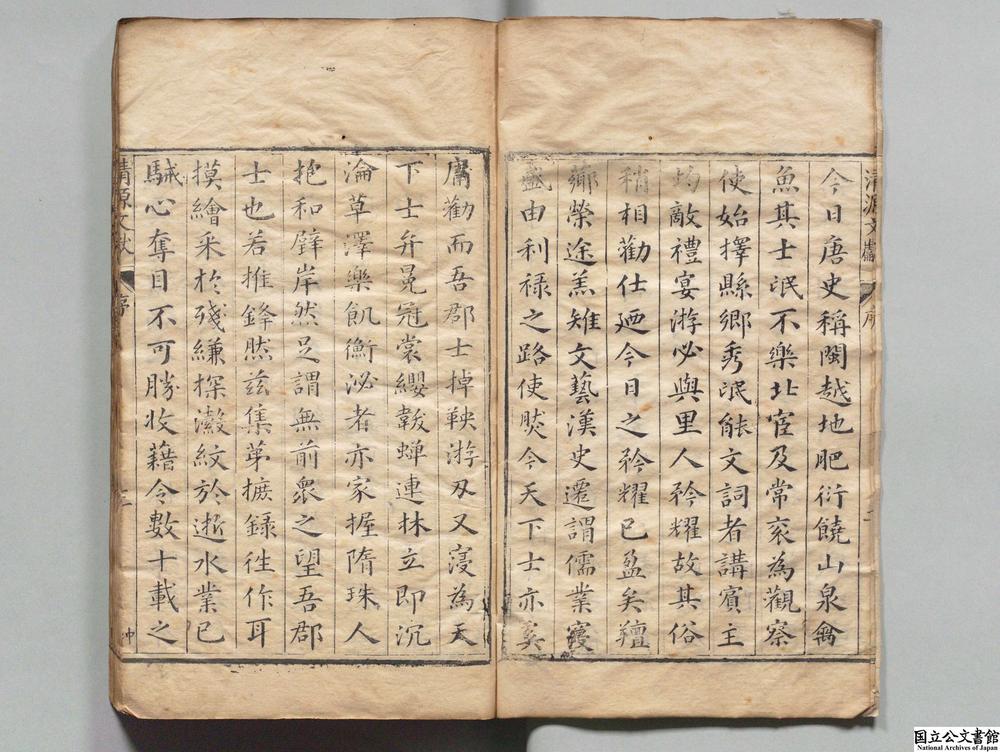 清源文獻 序 二
今日唐史稱閩越地肥衍饒山泉禽
魚其士民不樂北宦及常衮為觀察
使始擇縣鄉秀民能文詞者講賓主
均敵禮宴游必與里人矜耀故其俗
稍相勸仕廼今日之矜耀已盈矣羶
鄉榮途羔雉文藝漢史遷謂儒業寖
盛由利祿之路使然今天下士亦奚
庸勸而吾郡士掉鞅游刃又寖為天
下士弁冕冠裳纓韍蟬連林立即沉
淪草澤樂飢衡泌者亦家握隋珠人
抱和璧岸然足謂無前衆之望吾郡
士也若推鋒然茲集第摭錄徃作耳
摸繪采於殘縑探瀫紋於逝水業已
駴心奪目不可勝收藉令數十載之
清源文獻 序 三
国立公文書館
National Archives of Japan